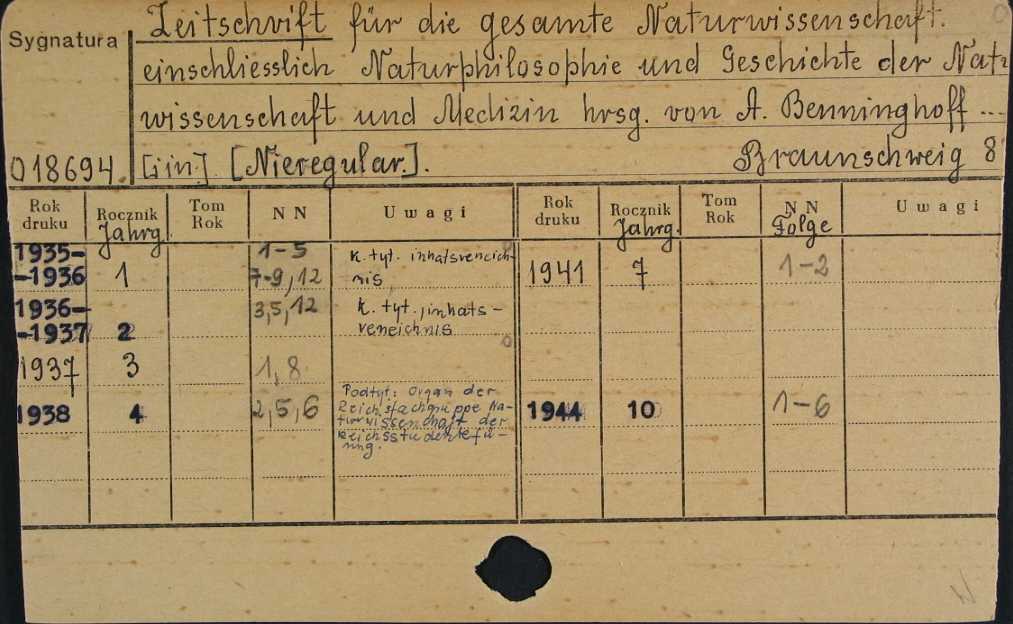 Sygnatura
Zeitschrift für die gesamte Naturwissenschaft.
einschliesslich Naturphilosophie und Geschichte der Natur
wissenschaft und Medizin hrsg. von A. Benninghoff ...
018694. [i in.] [Nieregular.]. Braunschweig 8
Rok druku Rocznik Jahrg. Tom Rok NN Uwagi Rok druku Rocznik Jahrg. Tom Rok NN Folge Uwagi
1935- 1-5 k. tyt. inhatsvereich-
-1936 1 7-9, 12 nis 1941 7 1-2
1936- 3,5,12 k. tyt., inhats-
-1937 2 vereichnis
1937 3 1,8
Podtyt.: Organ der
1938 4 2,5,6 Reichsfachgruppe Na- 1944 10 1-6
turwissenschaft der
Reichsstudentefü-
rung.